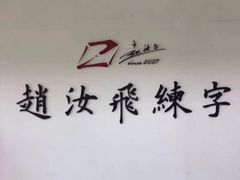 since 2007
趙汝飛練字